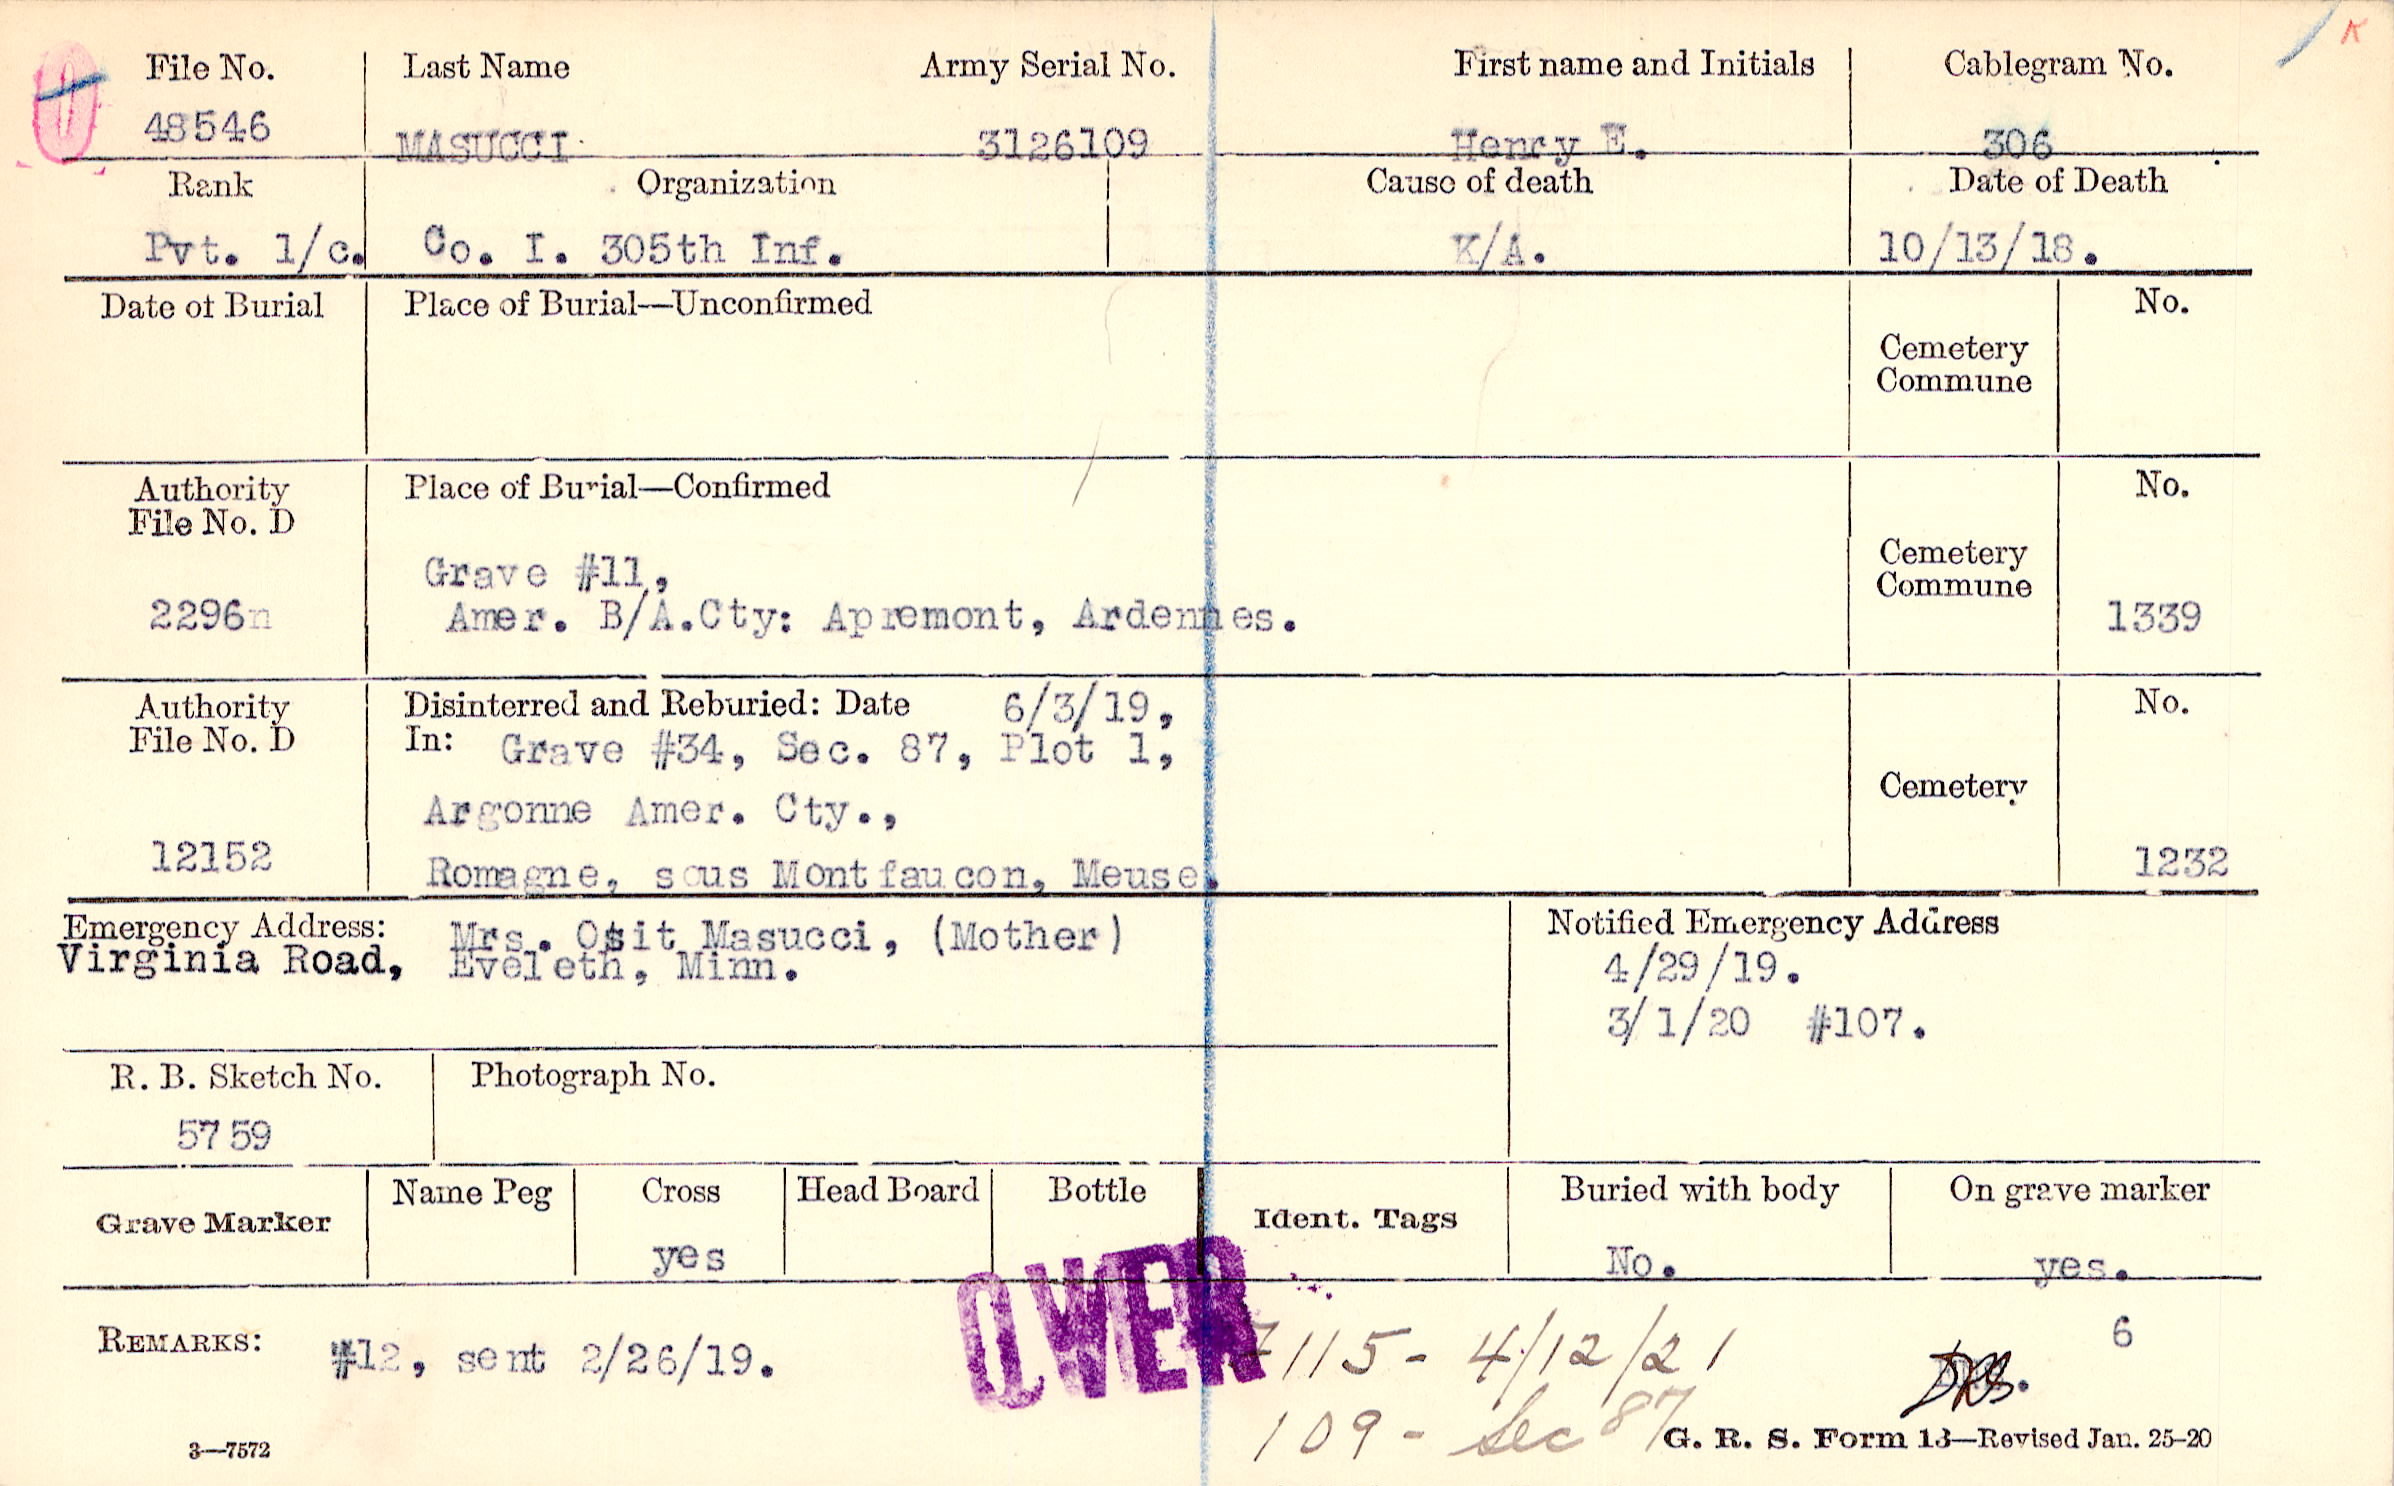 K
File No. Last Name Army Serial No. First name and Initials Cablegram No.
48546 MASUCCI 3126109 Henry E. 306
Rank Organization Cause of death Date of Death
Pvt. 1/c. Co. I. 305th Inf. K/A. 10/13/18.
Date of Burial Place of Burial—Unconfirmed No.
Cemetery
Commune
Authority Place of Burial—Confirmed No.
File No. D
Grave #11, Cemetery
Commune
2296n Amer. B/A.Cty: Apremont, Ardennes. 1339
Authority Disinterred and Reburied: Date 6/3/19, No.
File No. D In: Grave #34, Sec. 87, Plot 1,
Cemetery
Argonne Amer. Cty.,
12152 Romagne, sous Montfaucon, Meuse. 1232
Emergency Address: Mrs. Osit Masucci, (Mother) Notified Emergency Address
Virginia Road, Eveleth, Minn. 4/29/19.
3/1/20 #107.
R. B. Sketch No. Photograph No.
5759
Grave Marker Name Peg Cross Head Board Bottle Ident. Tags Buried with body On grave marker
yes No. yes.
OVER
REMARKS: #12, sent 2/26/19. 7115 - 4/12/21 6
109 - Sec 87
3—7572 G. R. S. Form 13—Revised Jan. 25-20